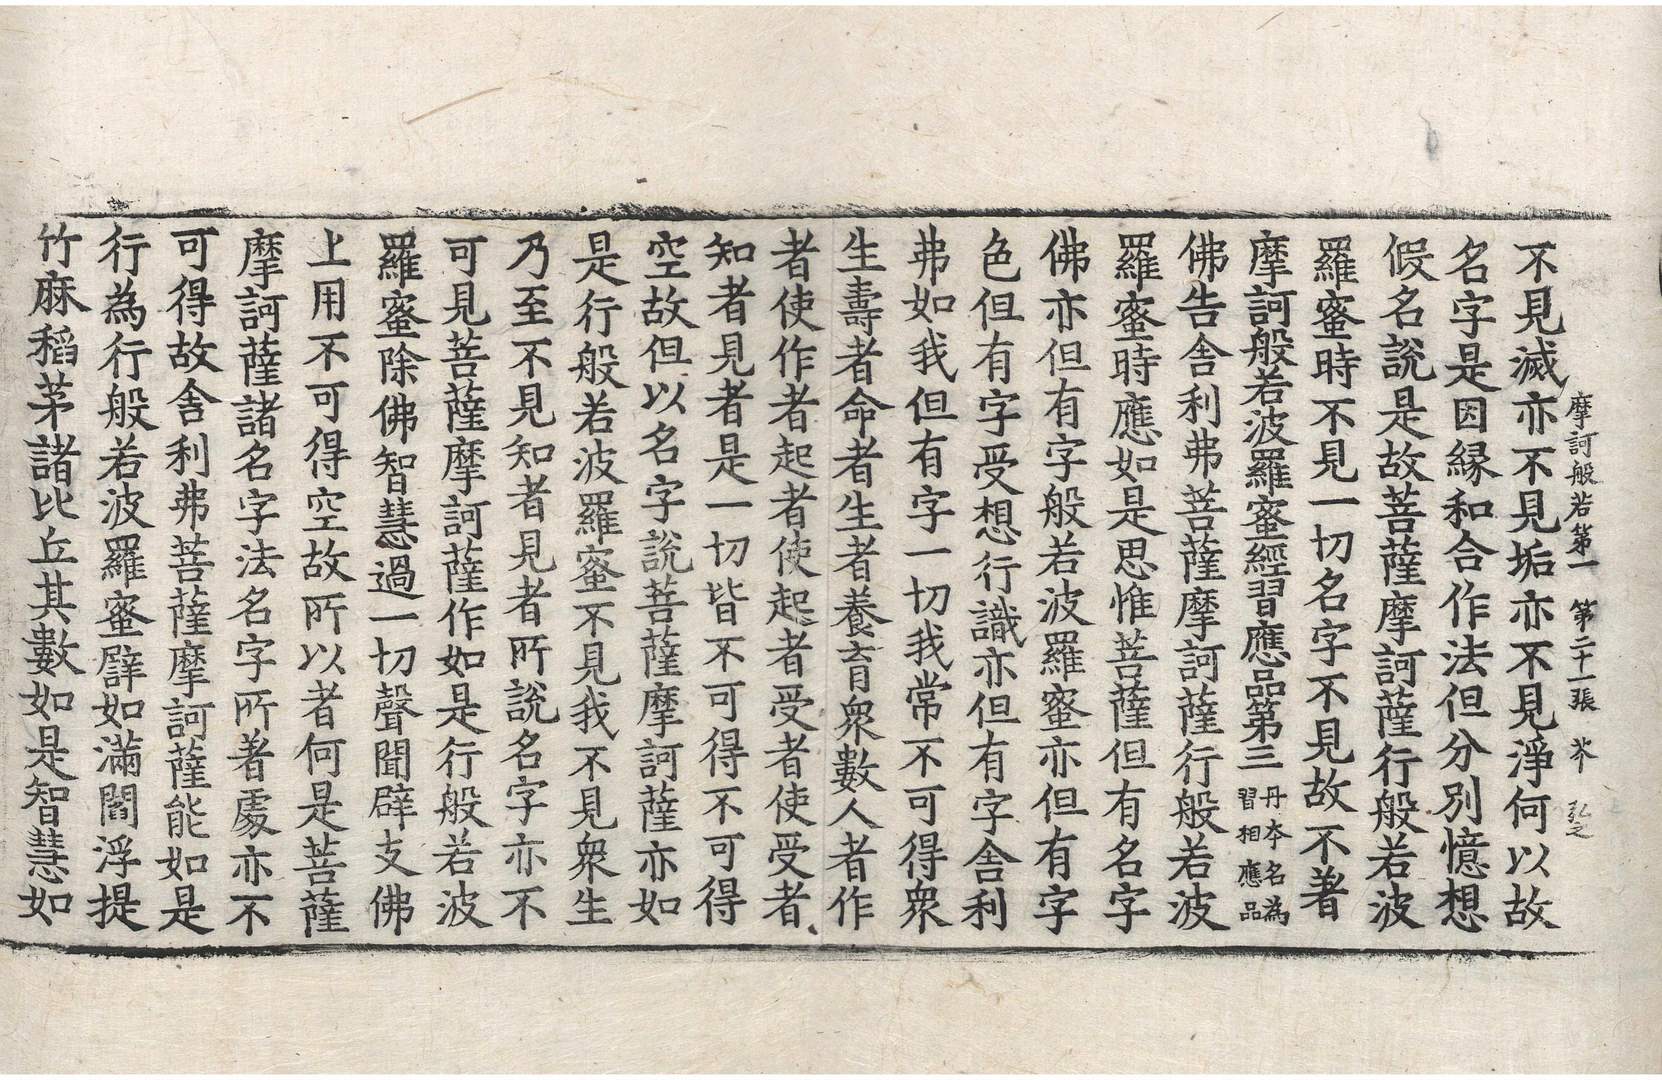 摩訶般若第一 第二十一張 芥 弘之
不見滅亦不見垢亦不見淨何以故
名字是因緣和合作法但分別憶想
假名說是故菩薩摩訶薩行般若波
羅蜜時不見一切名字不見故不著
摩訶般若波羅蜜經習應品第三 丹本名為習相應品
佛告舍利弗菩薩摩訶薩行般若波
羅蜜時應如是思惟菩薩但有名字
佛亦但有字般若波羅蜜亦但有字
色但有字受想行識亦但有字舍利
弗如我但有字一切我常不可得衆
生壽者命者生者養育衆數人者作
者使作者起者使起者受者使受者
知者見者是一切皆不可得不可得
空故但以名字說菩薩摩訶薩亦如
是行般若波羅蜜不見我不見衆生
乃至不見知者見者所說名字亦不
可見菩薩摩訶薩作如是行般若波
羅蜜除佛智慧過一切聲聞辟支佛
上用不可得空故所以者何是菩薩
摩訶薩諸名字法名字所著處亦不
可得故舍利弗菩薩摩訶薩能如是
行為行般若波羅蜜譬如滿閻浮提
竹麻稻茅諸比丘其數如是智慧如